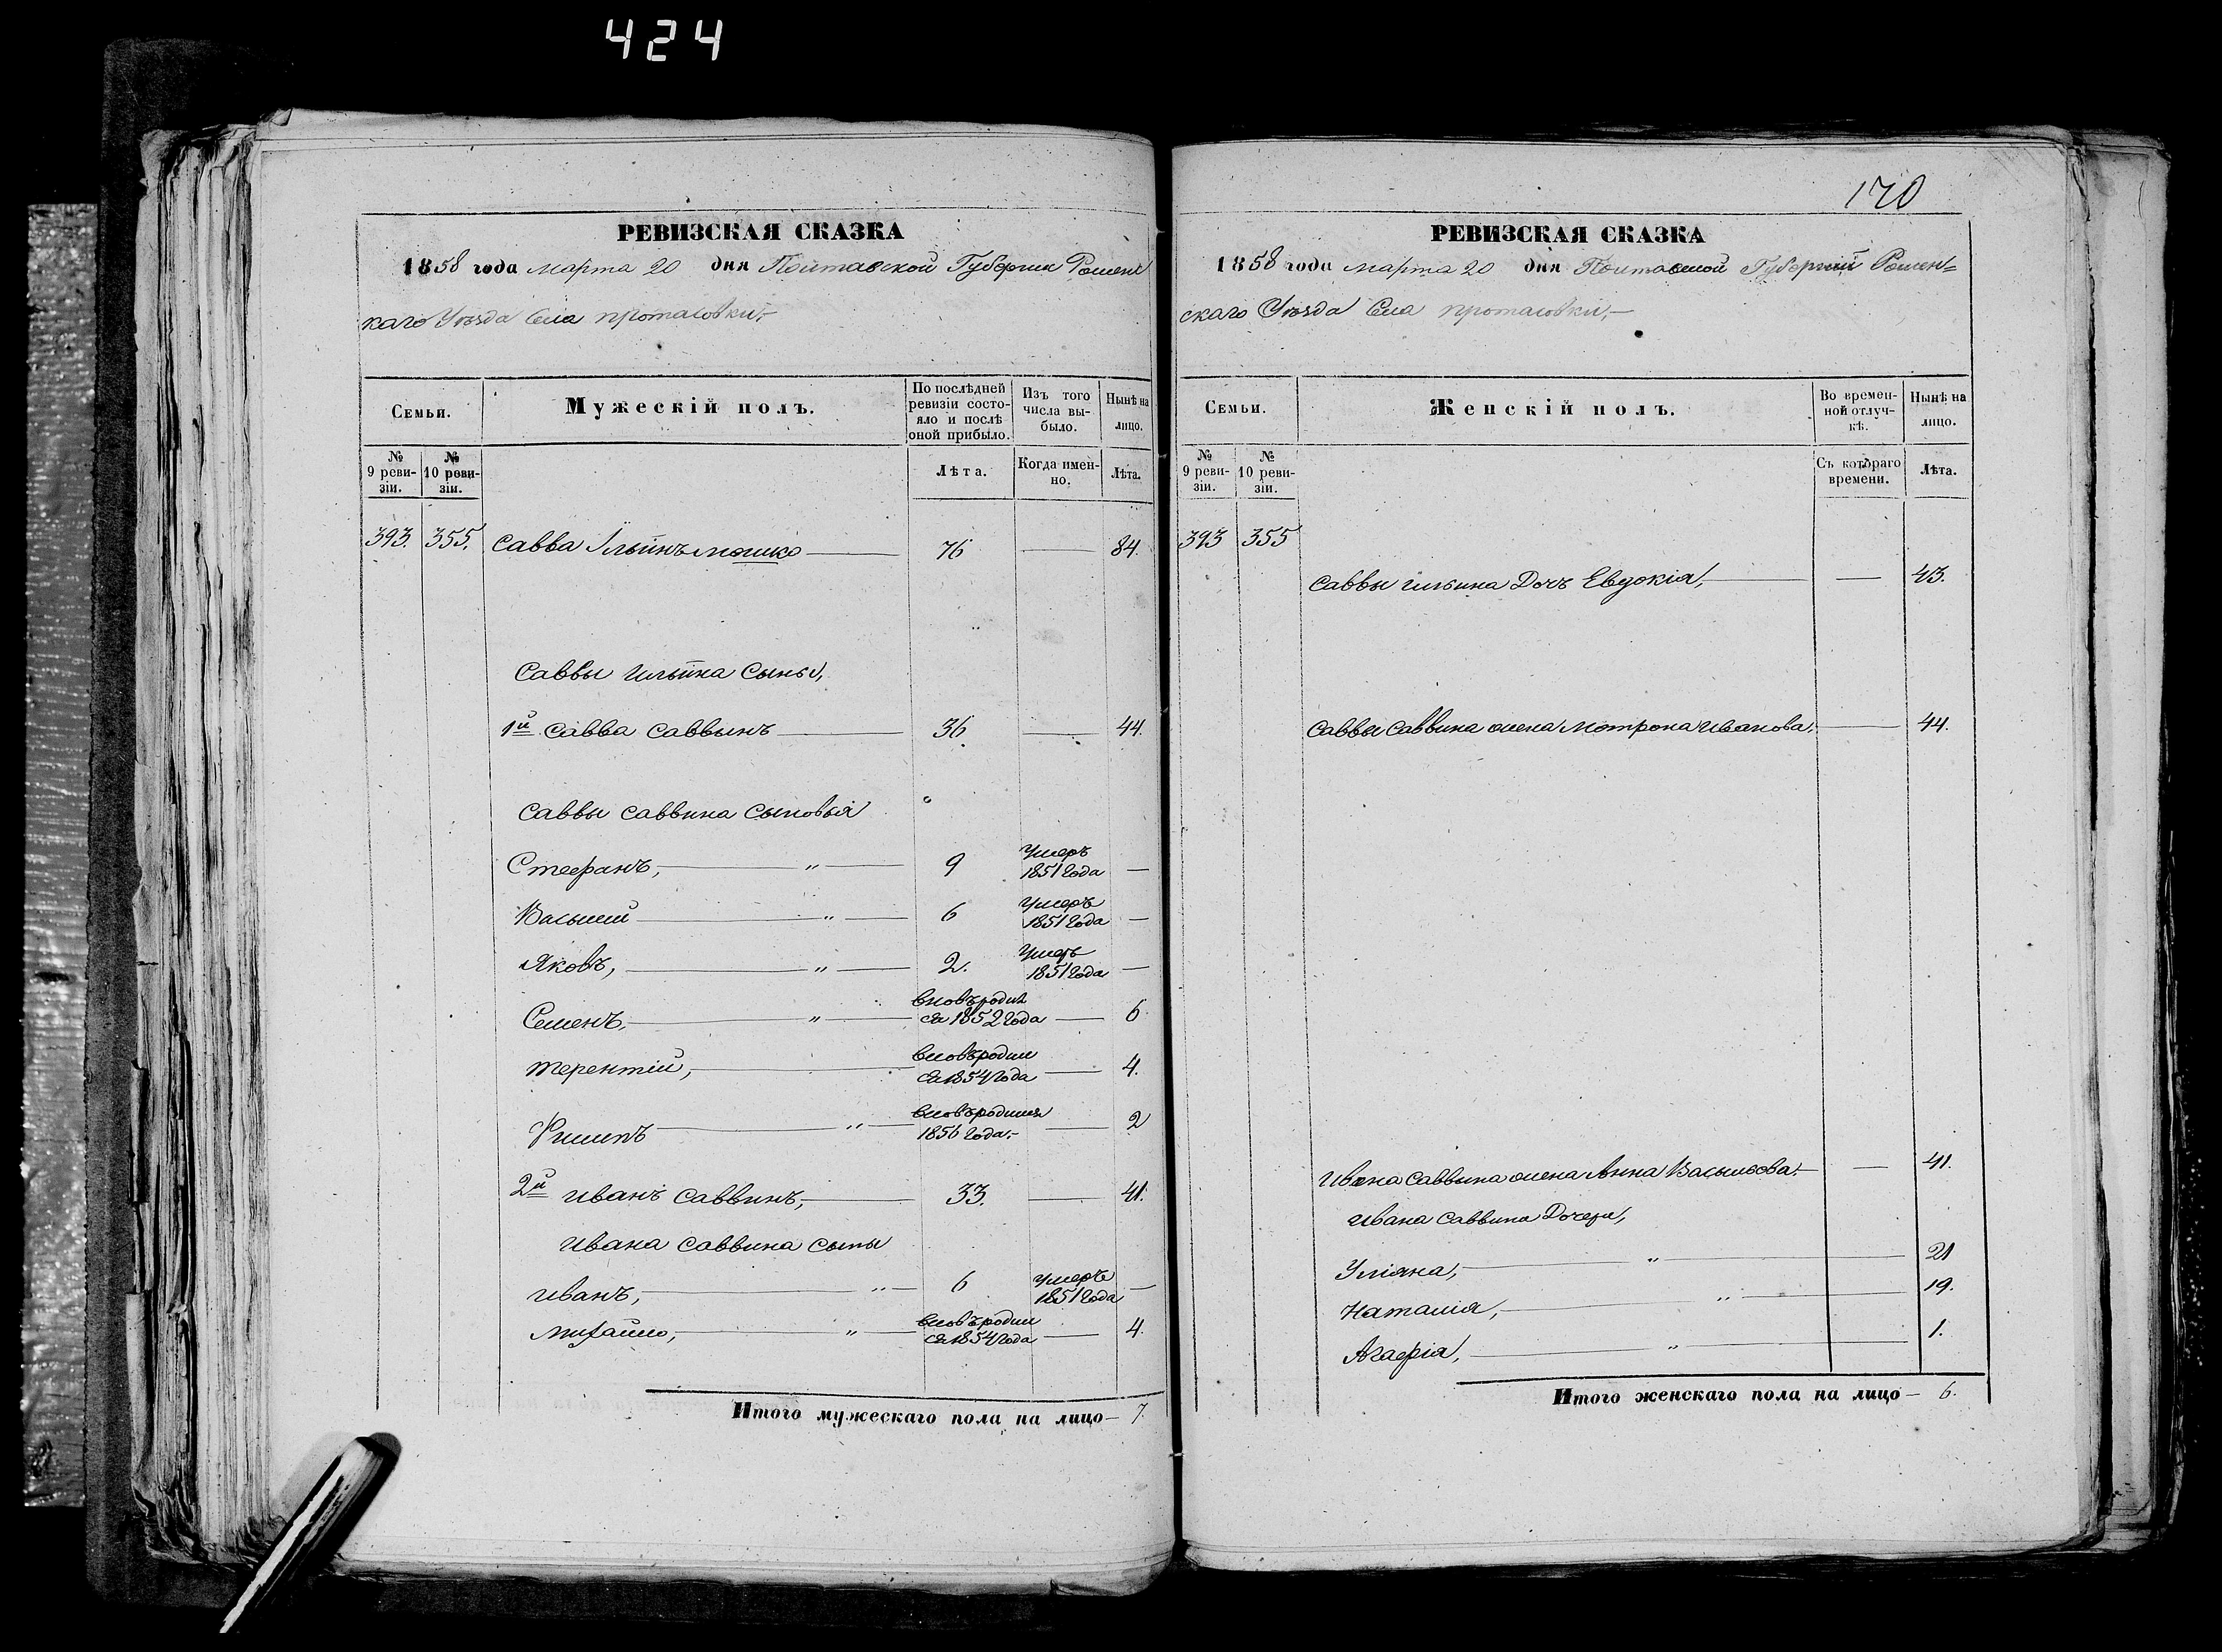 424
РЕВИЗСКАЯ СКАЗКА
1858 года марта 20 дня Полтавской Губернии Ромен
каго Уѣзда Села протасовки,-
Семьи.
Мужескій полъ.
По послѣдней ревизіи состо-
яло и послѣ
оной прибыло.
Изъ того
числа вы-
было.
Нынѣ на
лицо.
№
9 реви-
зіи.
№
10 реви-
зіи.
Лѣта.
Когда имен-
но.
Лѣта.
393. 355. Савва Ильинъ мошко — 76 — 84.
Саввы ильина Сыны,
1й Савва Саввынъ — 36. — 44.
Саввы Саввина Сыновья
Стефанъ, — " — 9 Умеръ
1851 года —
Василий — " — 6 Умеръ
1851 года —
Яковъ, — " — 2. Умеръ
1851 года —
Семенъ, — " — вновъ родил
ся 1852 года — 6
терентій, — вновъ родил
ся 1854 года — 4.
Филипъ — " — вновъ родился
1856 года.- — 2
2й иванъ Саввинъ, — 33. — 41.
ивана Саввина Сыны
иванъ, — " — 6 умеръ
1851 года —
михайло, — " — вновъ родил
ся 1854 года — 4.
Итого мужескаго пола на лицо — 7.
170
РЕВИЗСКАЯ СКАЗКА
1858 года марта 20 дня Полтавской Губерний Ромен=
скаго Уѣзда Села протасовки,-
Семьи.
Женскій полъ.
Во времен-
ной отлуч-
кѣ.
Нынѣ на
лицо.
№
9 реви-
зіи.
№
10 реви-
зіи.
Съ котораго
времени.
Лѣта.
393 355
Саввы ильина Дочъ Евдокія, — — 43.
Саввы Саввина жена Мотрона иванова, — 44.
ивана Саввина жена Анна Васильова.- — 41.
ивана Саввина Дочери,
Уліяна, — " — 21
Наталія, — " — 19.
Агафія, — " — 1.
Итого женскаго пола на лицо — 6.